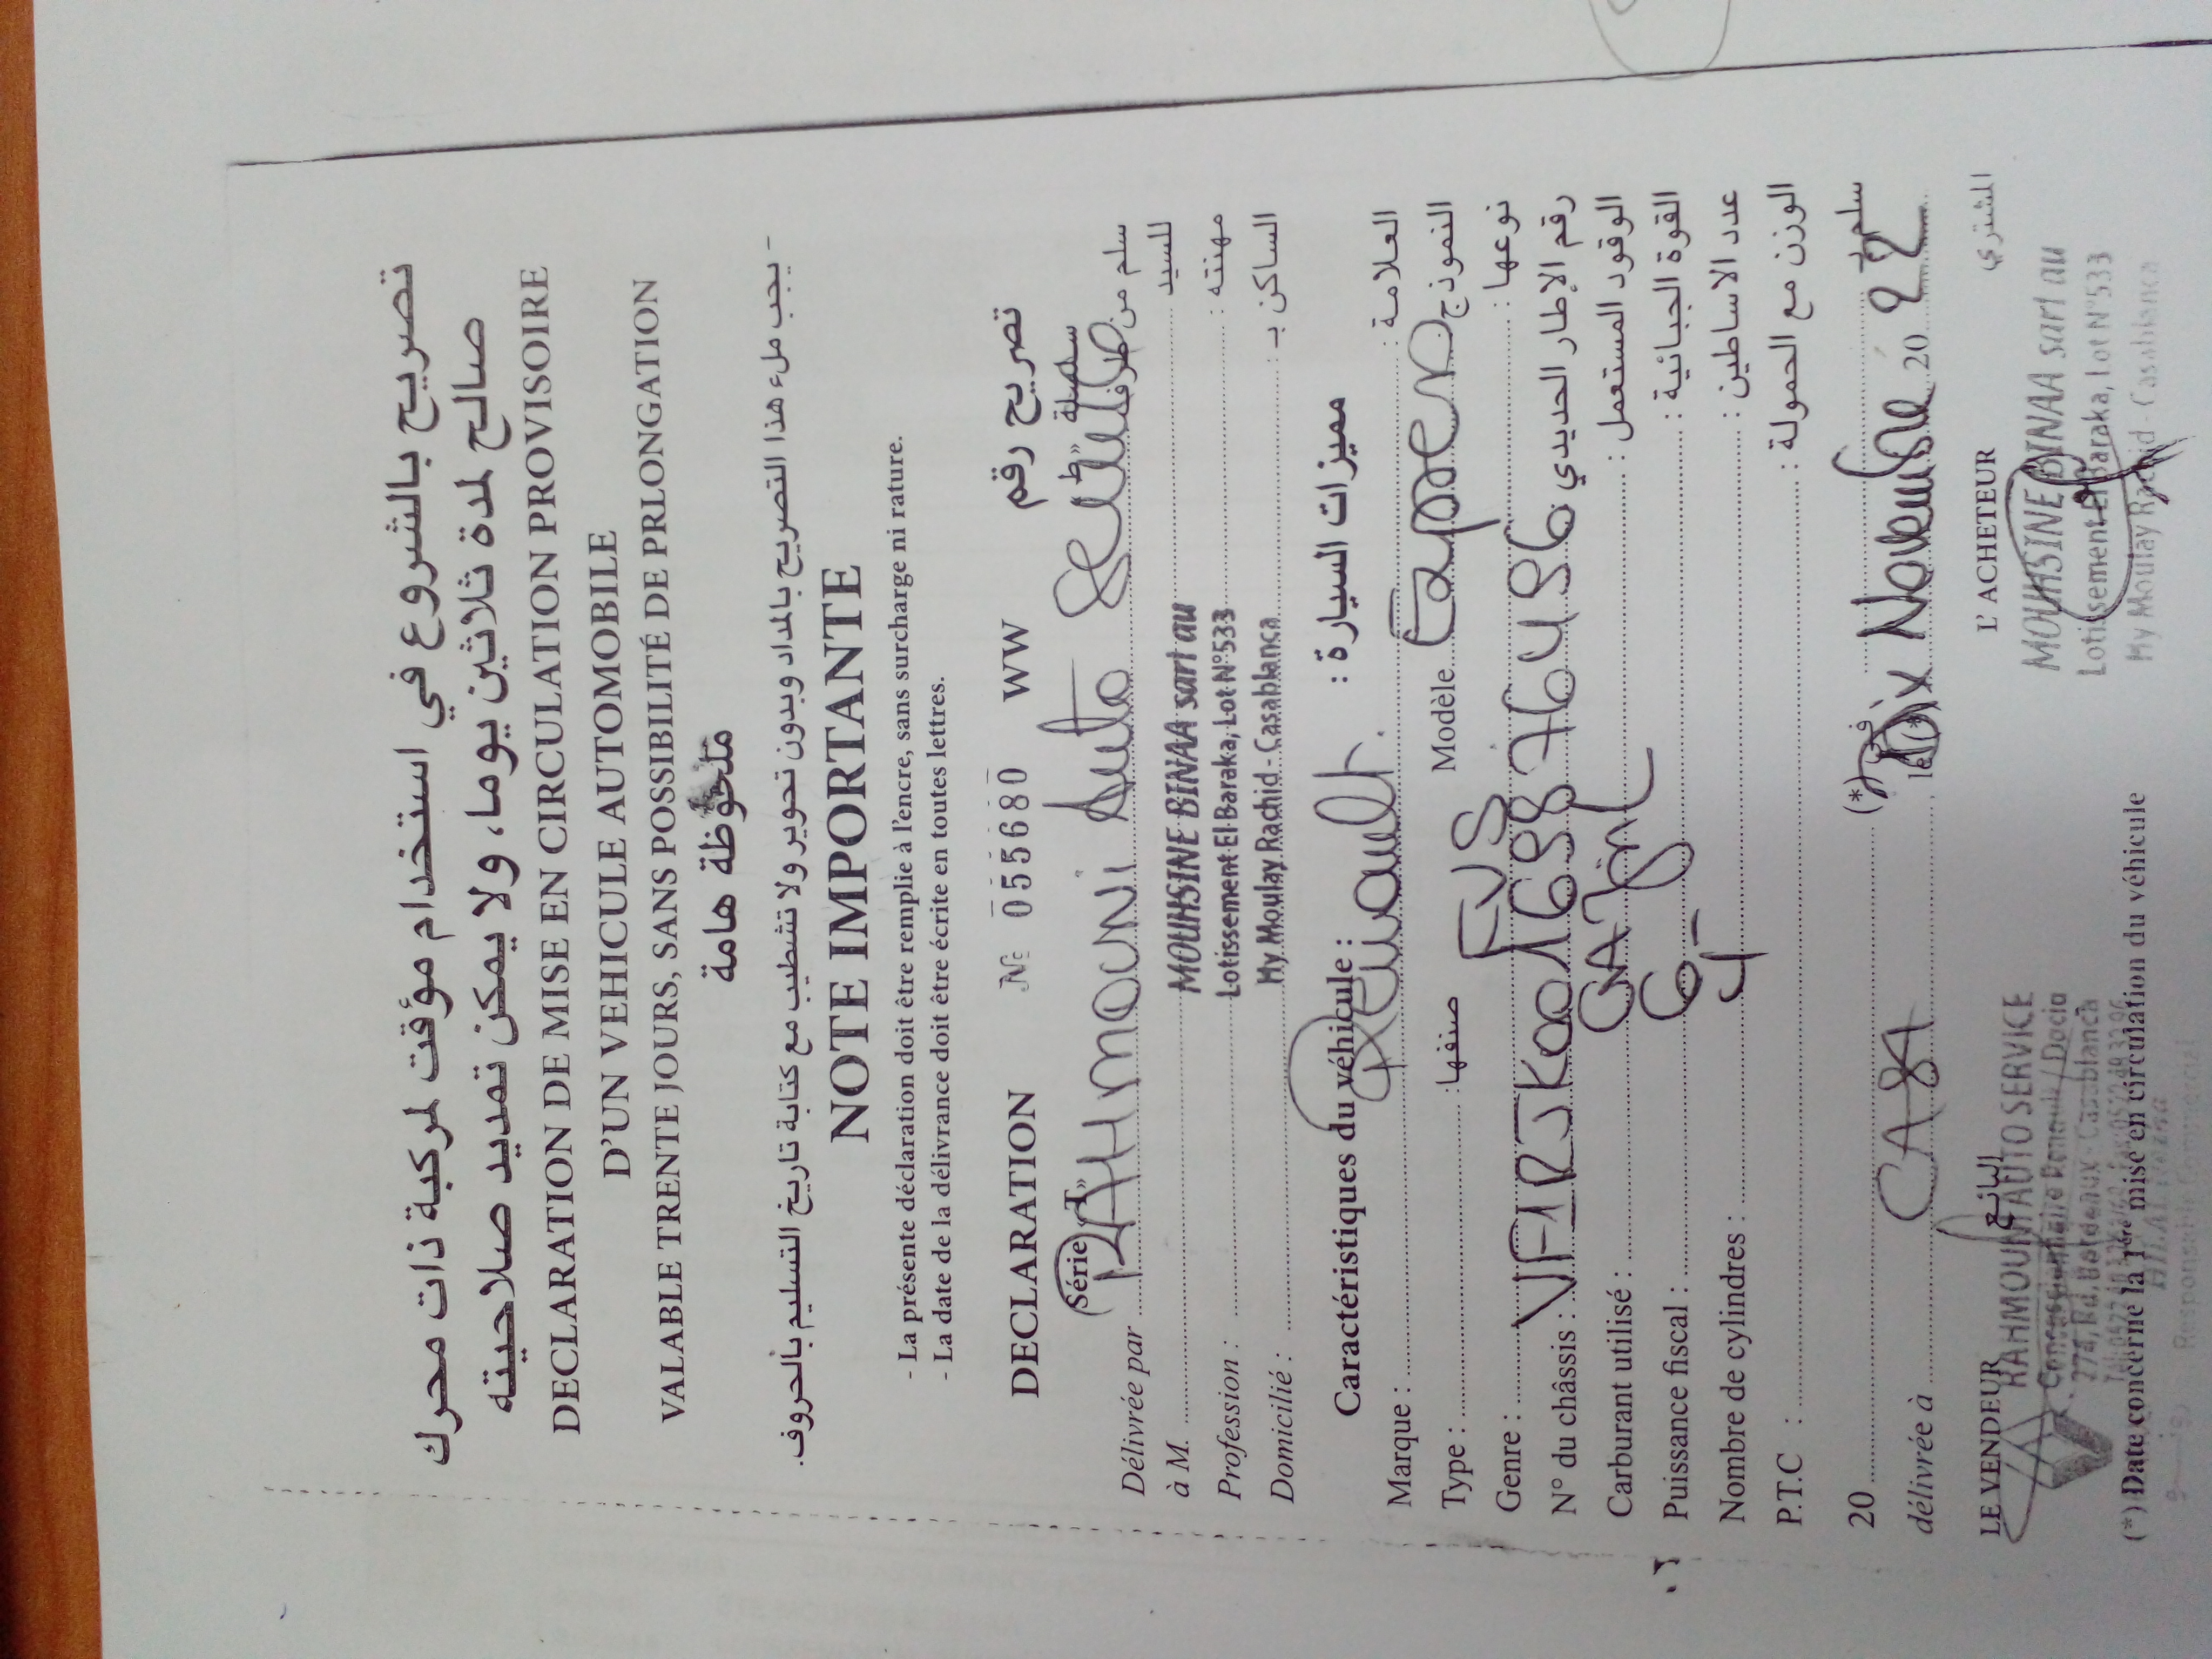 تصريح بالشروع في استخدام مؤقت لمركبة ذات محرك
صالح لمدة ثلاثين يوما، ولا يمكن تمديد صلاحيته
DECLARATION DE MISE EN CIRCULATION PROVISOIRE
D'UN VEHICULE AUTOMOBILE
VALABLE TRENTE JOURS, SANS POSSIBILITÉ DE PRLONGATION
ملحوظة هامة
- يجب ملء هذا التصريح بالمداد وبدون تحوير ولا تشطيب مع كتابة تاريخ التسليم بالحروف.
NOTE IMPORTANTE
- La présente déclaration doit être remplie à l'encre, sans surcharge ni rature.
- La date de la délivrance doit être écrite en toutes lettres.
DECLARATION № 055680 WW تصريح رقم
(Série "T") سلسلة "ط"
Délivrée par RAHMOUNI Auto Service سلم من طرف
à M. MOUHSINE BINAA sarl au للسيد
Profession : Lotissement El Baraka, Lot N°533 مهنته :
Domicilié : My Moulay Rachid - Casablanca الساكن بـ :
Caractéristiques du véhicule : مميزات السيارة :
Marque : Renault العلامة :
Type : صنفها : Modèle Express النموذج
Genre : نوعها :
N° du châssis : رقم الإطار الحديدي
Carburant utilisé : الوقود المستعمل :
Puissance fiscal : 6 القوة الجبائية :
Nombre de cylindres : 4 عدد الاساطين :
P.T.C : الوزن مع الحمولة :
20 (*) في سلم بـ
délivrée à CASA le(*) Dix Novembre 20 22
LE VENDEUR البائع L' ACHETEUR المشتري
RAHMOUNI AUTO SERVICE
Concessionnaire Renault / Dacia
274, Bd. Bordeaux - Casablanca
Responsable Commercial
MOUHSINE BINAA sarl au
Lotissement El Baraka, Lot N°533
My Moulay Rachid - Casablanca
(*) Date concerne la 1ère mise en circulation du véhicule